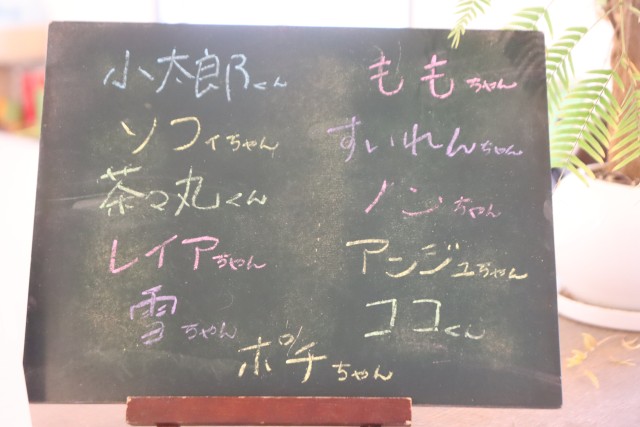 小太郎くん
ももちゃん
ソフィちゃん
すいれんちゃん
茶々丸くん
ノンちゃん
レイアちゃん
アンジュちゃん
雪ちゃん
ココくん
ポチちゃん